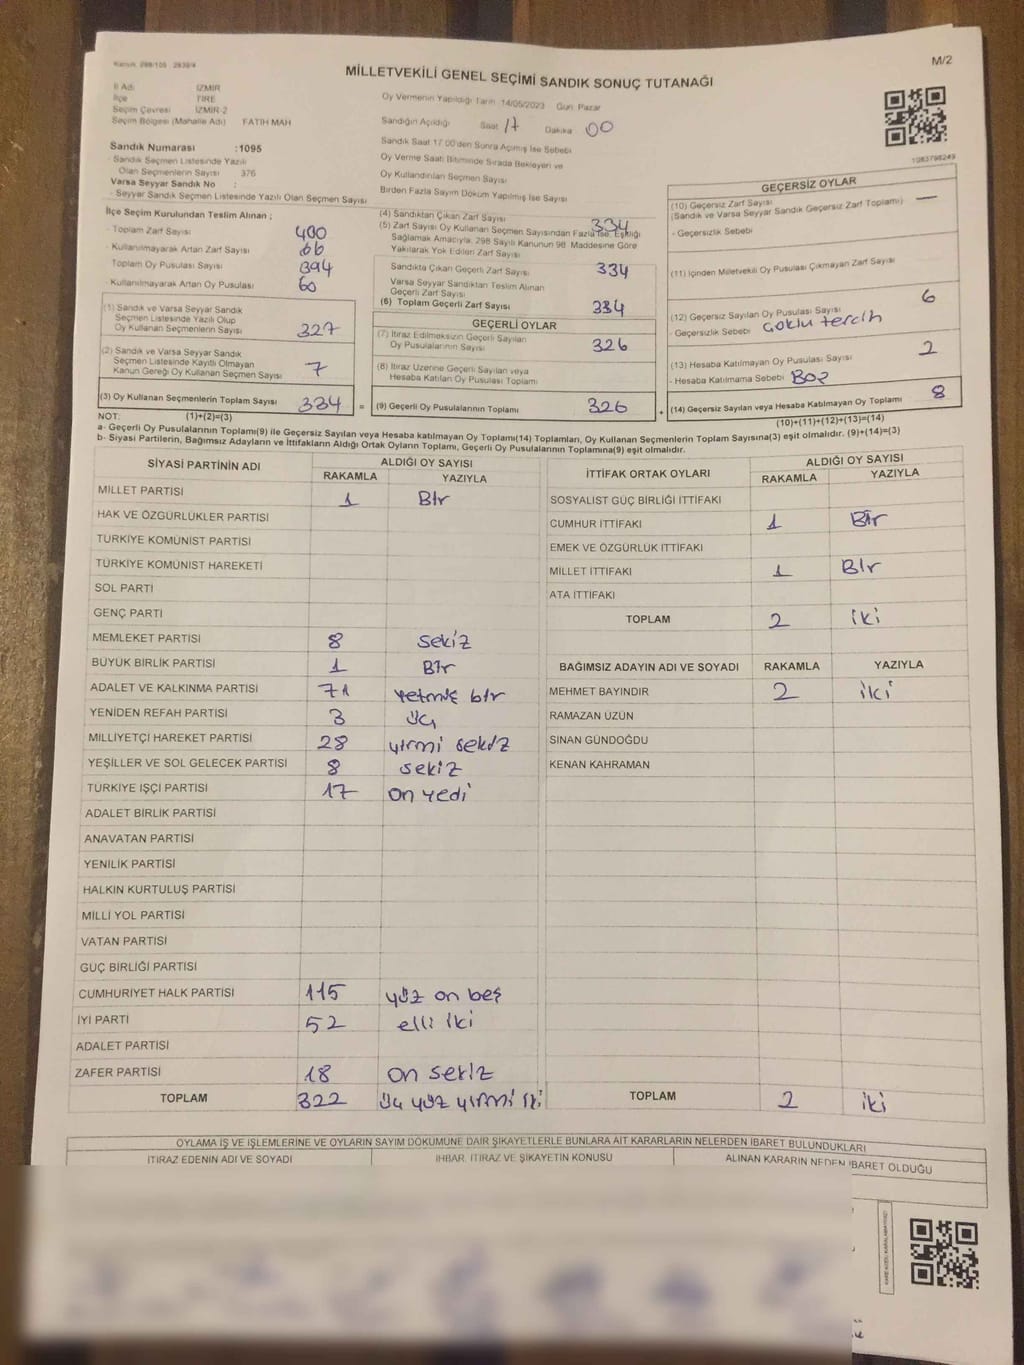 Kanun 298/105 - 2839/4
M/2
MİLLETVEKİLİ GENEL SEÇİMİ SANDIK SONUÇ TUTANAĞI
İl Adı İZMİR
İlçe TİRE
Seçim Çevresi İZMİR-2
Seçim Bölgesi (Mahalle Adı) FATİH MAH
Oy Vermenin Yapıldığı Tarih 14/05/2023 Gün Pazar
Sandığın Açıldığı Saat 17 Dakika 00
Sandık Saat 17.00'den Sonra Açılmış İse Sebebi
Oy Verme Saati Bitiminde Sırada Bekleyen ve
Oy Kullandırılan Seçmen Sayısı
Birden Fazla Sayım Döküm Yapılmış İse Sayısı
1083798249
Sandık Numarası :1095
- Sandık Seçmen Listesinde Yazılı
Olan Seçmenlerin Sayısı 376
Varsa Seyyar Sandık No :
- Seyyar Sandık Seçmen Listesinde Yazılı Olan Seçmen Sayısı
İlçe Seçim Kurulundan Teslim Alınan ;
- Toplam Zarf Sayısı 400
- Kullanılmayarak Artan Zarf Sayısı 66
Toplam Oy Pusulası Sayısı 394
- Kullanılmayarak Artan Oy Pusulası 60
(1) Sandık ve Varsa Seyyar Sandık
Seçmen Listesinde Yazılı Olup
Oy Kullanan Seçmenlerin Sayısı 327
(2) Sandık ve Varsa Seyyar Sandık
Seçmen Listesinde Kayıtlı Olmayan
Kanun Gereği Oy Kullanan Seçmen Sayısı 7
(3) Oy Kullanan Seçmenlerin Toplam Sayısı 334
(4) Sandıktan Çıkan Zarf Sayısı 334
(5) Zarf Sayısı Oy Kullanan Seçmen Sayısından Fazla İse, Eşitliği
Sağlamak Amacıyla, 298 Sayılı Kanunun 98. Maddesine Göre
Yakılarak Yok Edilen Zarf Sayısı
Sandıkta Çıkan Geçerli Zarf Sayısı 334
Varsa Seyyar Sandıktan Teslim Alınan
Geçerli Zarf Sayısı
(6) Toplam Geçerli Zarf Sayısı 334
GEÇERLİ OYLAR
(7) İtiraz Edilmeksizin Geçerli Sayılan
Oy Pusulalarının Sayısı 326
(8) İtiraz Üzerine Geçerli Sayılan veya
Hesaba Katılan Oy Pusulası Toplamı
= (9) Geçerli Oy Pusulalarının Toplamı 326 +
GEÇERSİZ OYLAR
(10) Geçersiz Zarf Sayısı —
(Sandık ve Varsa Seyyar Sandık Geçersiz Zarf Toplamı)
- Geçersizlik Sebebi
(11) İçinden Milletvekili Oy Pusulası Çıkmayan Zarf Sayısı
(12) Geçersiz Sayılan Oy Pusulası Sayısı 6
- Geçersizlik Sebebi Çoklu tercih
(13) Hesaba Katılmayan Oy Pusulası Sayısı 2
- Hesaba Katılmama Sebebi Boş
(14) Geçersiz Sayılan veya Hesaba Katılmayan Oy Toplamı 8
NOT: (1)+(2)=(3) (10)+(11)+(12)+(13)=(14)
a- Geçerli Oy Pusulalarının Toplamı(9) ile Geçersiz Sayılan veya Hesaba katılmayan Oy Toplamı(14) Toplamları, Oy Kullanan Seçmenlerin Toplam Sayısına(3) eşit olmalıdır. (9)+(14)=(3)
b- Siyasi Partilerin, Bağımsız Adayların ve İttifakların Aldığı Ortak Oyların Toplamı, Geçerli Oy Pusulalarının Toplamına(9) eşit olmalıdır.
SİYASİ PARTİNİN ADI ALDIĞI OY SAYISI
RAKAMLA YAZIYLA
MİLLET PARTİSİ 1 Bir
HAK VE ÖZGÜRLÜKLER PARTİSİ
TÜRKİYE KOMÜNİST PARTİSİ
TÜRKİYE KOMÜNİST HAREKETİ
SOL PARTİ
GENÇ PARTİ
MEMLEKET PARTİSİ 8 sekiz
BÜYÜK BİRLİK PARTİSİ 1 Bir
ADALET VE KALKINMA PARTİSİ 71 yetmiş bir
YENİDEN REFAH PARTİSİ 3 üç
MİLLİYETÇİ HAREKET PARTİSİ 28 yirmi sekiz
YEŞİLLER VE SOL GELECEK PARTİSİ 8 sekiz
TÜRKİYE İŞÇİ PARTİSİ 17 on yedi
ADALET BİRLİK PARTİSİ
ANAVATAN PARTİSİ
YENİLİK PARTİSİ
HALKIN KURTULUŞ PARTİSİ
MİLLİ YOL PARTİSİ
VATAN PARTİSİ
GÜÇ BİRLİĞİ PARTİSİ
CUMHURİYET HALK PARTİSİ 115 yüz on beş
İYİ PARTİ 52 elli iki
ADALET PARTİSİ
ZAFER PARTİSİ 18 on sekiz
TOPLAM 322 üç yüz yirmi iki
İTTİFAK ORTAK OYLARI ALDIĞI OY SAYISI
RAKAMLA YAZIYLA
SOSYALİST GÜÇ BİRLİĞİ İTTİFAKI
CUMHUR İTTİFAKI 1 Bir
EMEK VE ÖZGÜRLÜK İTTİFAKI
MİLLET İTTİFAKI 1 Bir
ATA İTTİFAKI
TOPLAM 2 iki
BAĞIMSIZ ADAYIN ADI VE SOYADI RAKAMLA YAZIYLA
MEHMET BAYINDIR 2 iki
RAMAZAN UZUN
SİNAN GÜNDOĞDU
KENAN KAHRAMAN
TOPLAM 2 iki
OYLAMA İŞ VE İŞLEMLERİNE VE OYLARIN SAYIM DÖKÜMÜNE DAİR ŞİKAYETLERLE BUNLARA AİT KARARLARIN NELERDEN İBARET BULUNDUKLARI
İTİRAZ EDENİN ADI VE SOYADI İHBAR, İTİRAZ VE ŞİKAYETİN KONUSU ALINAN KARARIN NEDEN İBARET OLDUĞU
KARE KODU KARALAMAYINIZ!